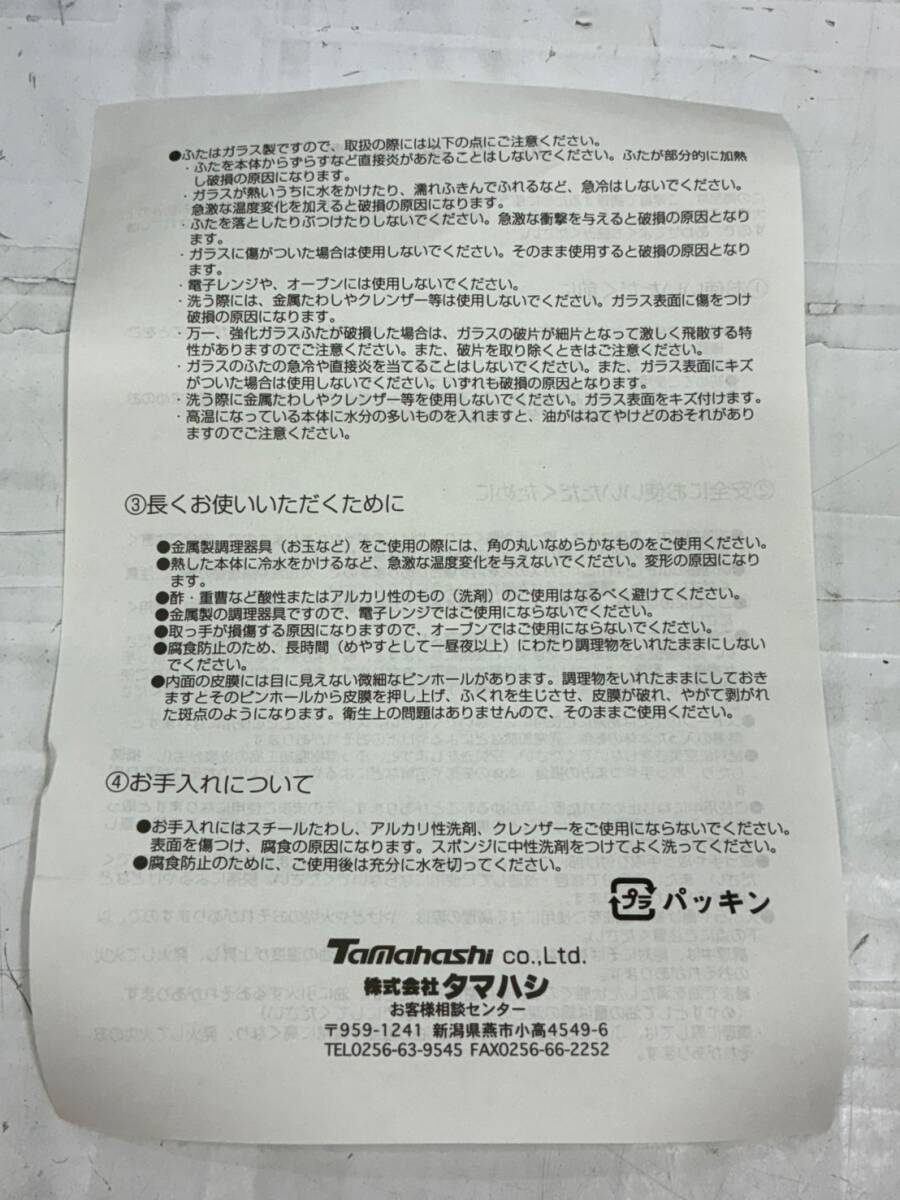 ●ふたはガラス製ですので、取扱の際には以下の点にご注意ください。
・ふたを本体からずらすなど直接炎があたることはしないでください。ふたが部分的に加熱
し破損の原因になります。
・ガラスが熱いうちに水をかけたり、濡れふきんでふれるなど、急冷はしないでください。
急激な温度変化を加えると破損の原因になります。
・ふたを落としたりぶつけたりしないでください。急激な衝撃を与えると破損の原因となり
ます。
・ガラスに傷がついた場合は使用しないでください。そのまま使用すると破損の原因となり
ます。
・電子レンジや、オーブンには使用しないでください。
・洗う際には、金属たわしやクレンザー等は使用しないでください。ガラス表面に傷をつけ
破損の原因になります。
・万一、強化ガラスふたが破損した場合は、ガラスの破片が細片となって激しく飛散する特
性がありますのでご注意ください。また、破片を取り除くときはご注意ください。
・ガラスのふたの急冷や直接炎を当てることはしないでください。また、ガラス表面にキズ
がついた場合は使用しないでください。いずれも破損の原因となります。
・洗う際に金属たわしやクレンザー等を使用しないでください。ガラス表面をキズ付けます。
・高温になっている本体に水分の多いものを入れますと、油がはねてやけどのおそれがあり
ますのでご注意ください。
③長くお使いいただくために
●金属製調理器具（お玉など）をご使用の際には、角の丸いなめらかなものをご使用ください。
●熱した本体に冷水をかけるなど、急激な温度変化を与えないでください。変形の原因になり
ます。
●酢・重曹など酸性またはアルカリ性のもの（洗剤）のご使用はなるべく避けてください。
●金属製の調理器具ですので、電子レンジではご使用にならないでください。
●取っ手が損傷する原因になりますので、オーブンではご使用にならないでください。
●腐食防止のため、長時間（めやすとして一昼夜以上）にわたり調理物をいれたままにしない
でください。
●内面の皮膜には目に見えない微細なピンホールがあります。調理物をいれたままにしておき
ますとそのピンホールから皮膜を押し上げ、ふくれを生じさせ、皮膜が破れ、やがて剥がれ
た斑点のようになります。衛生上の問題はありませんので、そのままご使用ください。
④お手入れについて
●お手入れにはスチールたわし、アルカリ性洗剤、クレンザーをご使用にならないでください。
表面を傷つけ、腐食の原因になります。スポンジに中性洗剤をつけてよく洗ってください。
●腐食防止のために、ご使用後は充分に水を切ってください。
プラ パッキン
Tamahashi co.,Ltd.
株式会社タマハシ
お客様相談センター
〒959-1241 新潟県燕市小高4549-6
TEL0256-63-9545 FAX0256-66-2252